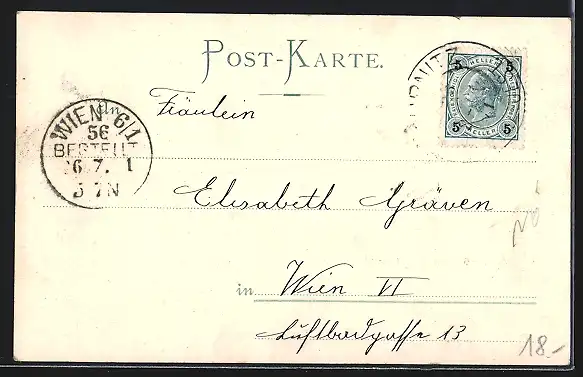 POST-KARTE.
5 HELLER 5
5 HELLER 5
An
Fräulein
WIEN 6/1
56
BESTELLT
6.7. 1
5 7N
Elisabeth Gräven
in Wien VI
Luftbadgasse 13
18.-